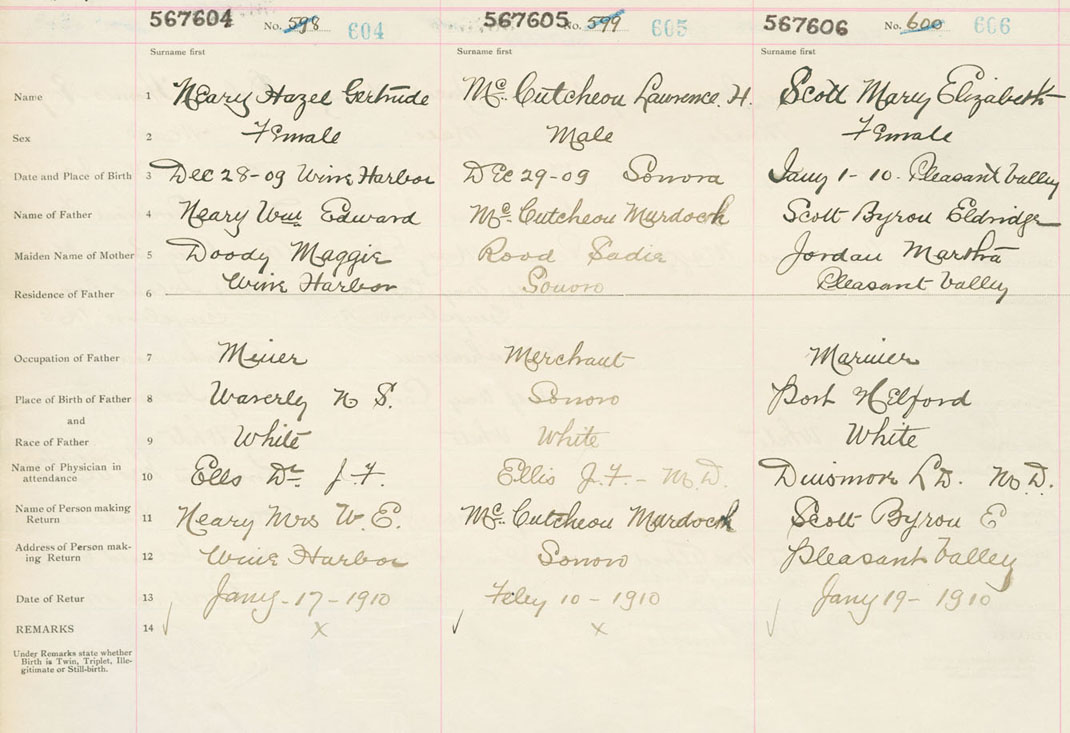 567604 No. 598 604 567605 No. 599 605 567606 No. 600 606
Surname first Surname first Surname first
Name 1 Neary Hazel Gertrude Mc. Cutcheon Lawrence. H. Scott Mary Elizabeth
Sex 2 Female Male Female
Date and Place of Birth 3 Dec 28-09 Wine Harbor Dec 29-09 Sonora Jany 1-10. Pleasant Valley
Name of Father 4 Neary Wm Edward Mc. Cutcheon Murdoch Scott Byron Eldridge
Maiden Name of Mother 5 Doody Maggie Rood Sadie Jordan Martha
Residence of Father 6 Wine Harbor Sonoro Pleasant Valley
Occupation of Father 7 Miner Merchant Mariner
Place of Birth of Father 8 Waverly N S. Sonoro Port Hilford
and
Race of Father 9 White White White
Name of Physician in
attendance 10 Ells Dr J. F. Ellis J. F. - M. D. Dinsmore L D. M. D.
Name of Person making
Return 11 Neary Mrs W. E. Mc. Cutcheon Murdoch Scott Byron E
Address of Person mak-
ing Return 12 Wine Harbor Sonoro Pleasant Valley
Date of Retur 13 Jany-17-1910 Feby 10-1910 Jany 19-1910
REMARKS 14 x x
Under Remarks state whether
Birth is Twin, Triplet, Ille-
gitimate or Still-birth.